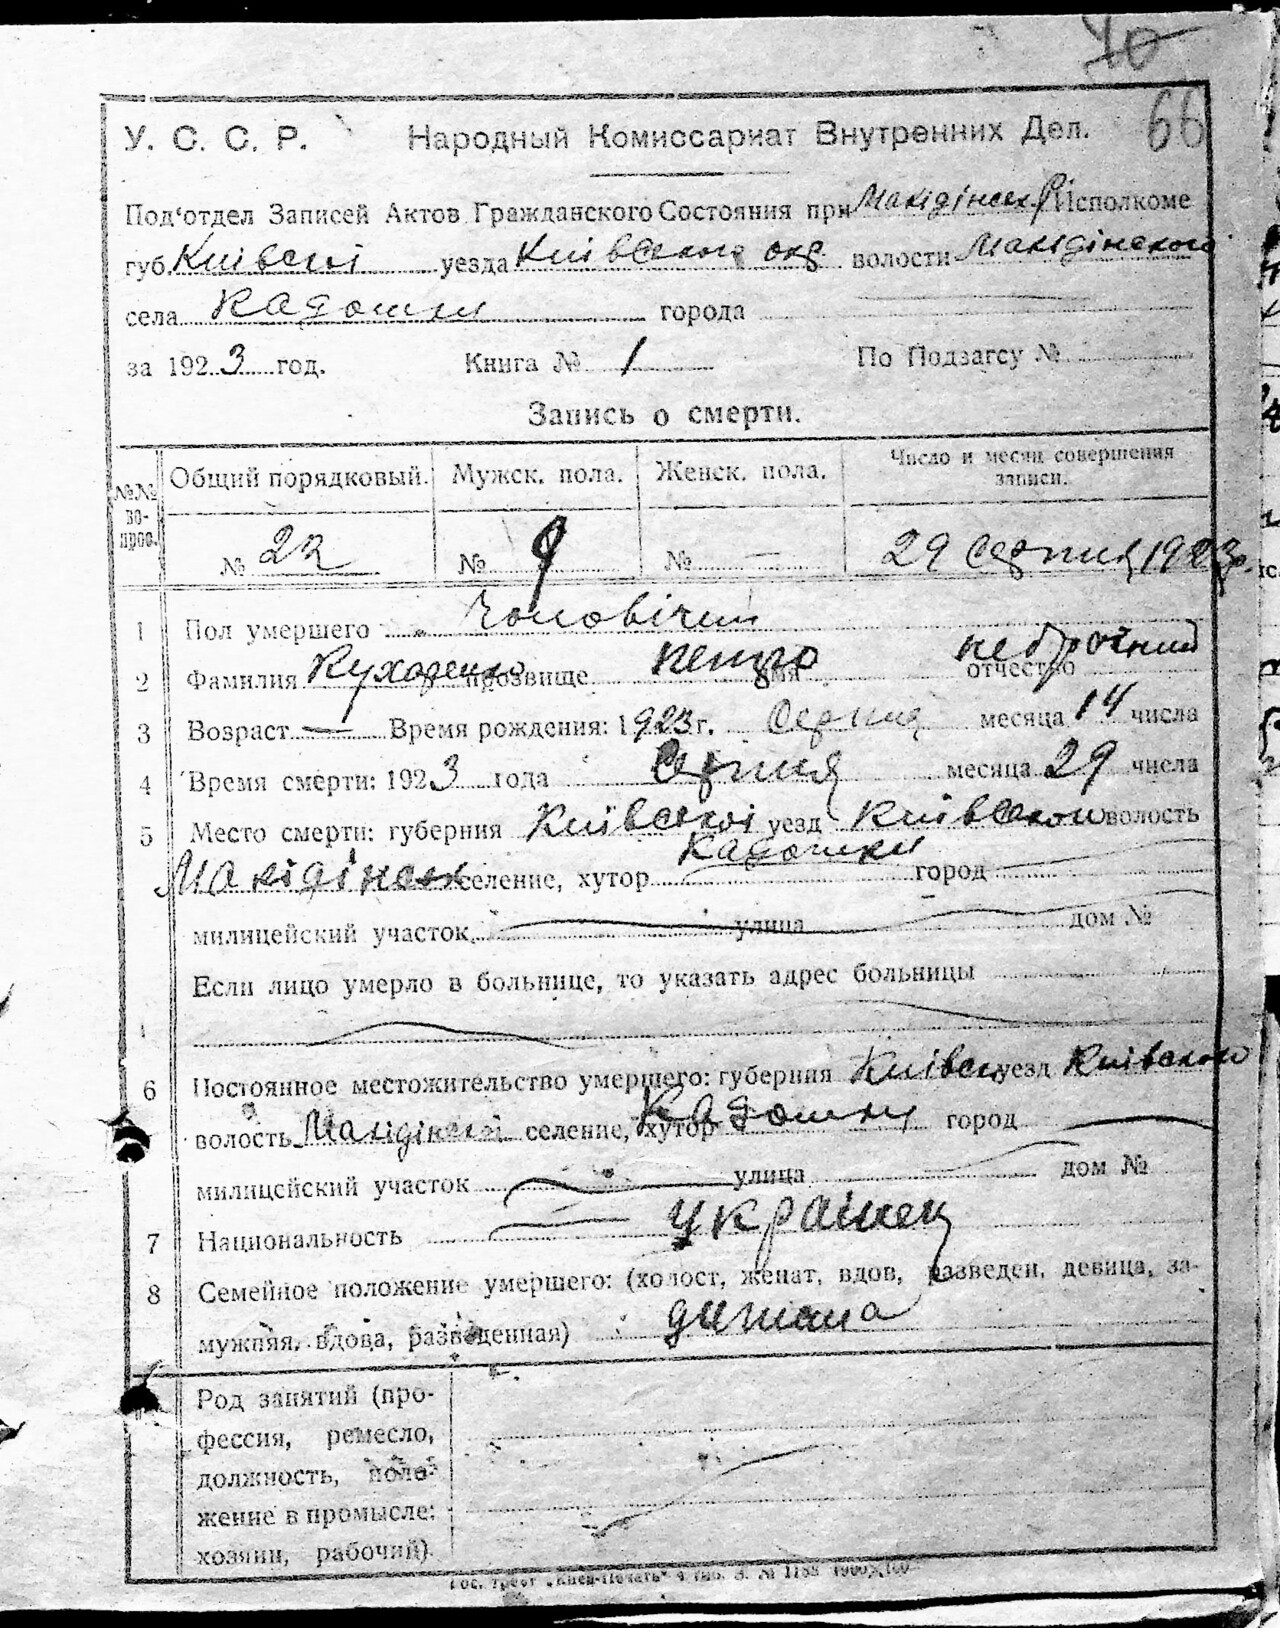 70
66
У. С. С. Р. Народный Комиссариат Внутренних Дел.
Под'отдел Записей Актов Гражданского Состояния при Исполкоме
губ. Київської уезда Київського окр. волости
села Кадошки города
за 1923 год. Книга № 1 По Подзагсу №
Запись о смерти.
№№ вопрос. Общий порядковый. Мужск. пола. Женск. пола. Число и месяц совершения записи.
№ 22 № 9 № — 29 Серпня 1923р.
1 Пол умершего Чоловічий
2 Фамилия Кухаренко прозвище Петро имя отчество
3 Возраст — Время рождения: 1923 г. Серпня месяца 14 числа
4 Время смерти: 1923 года Серпня месяца 29 числа
5 Место смерти: губерния Київської уезд Київського волость
селение, хутор Кадошки город
милицейский участок улица дом №
Если лицо умерло в больнице, то указать адрес больницы
6 Постоянное местожительство умершего: губерния Київськ уезд Київського
волость селение, хутор Кадошки город —
милицейский участок улица дом №
7 Национальность Українец
8 Семейное положение умершего: (холост, женат, вдов, разведен, девица, за-
мужняя, вдова, разведенная) дитина
Род занятий (про-
фессия, ремесло,
должность, поло-
жение в промысле:
хозяин, рабочий).
Гос. трест „Киев-Печать“